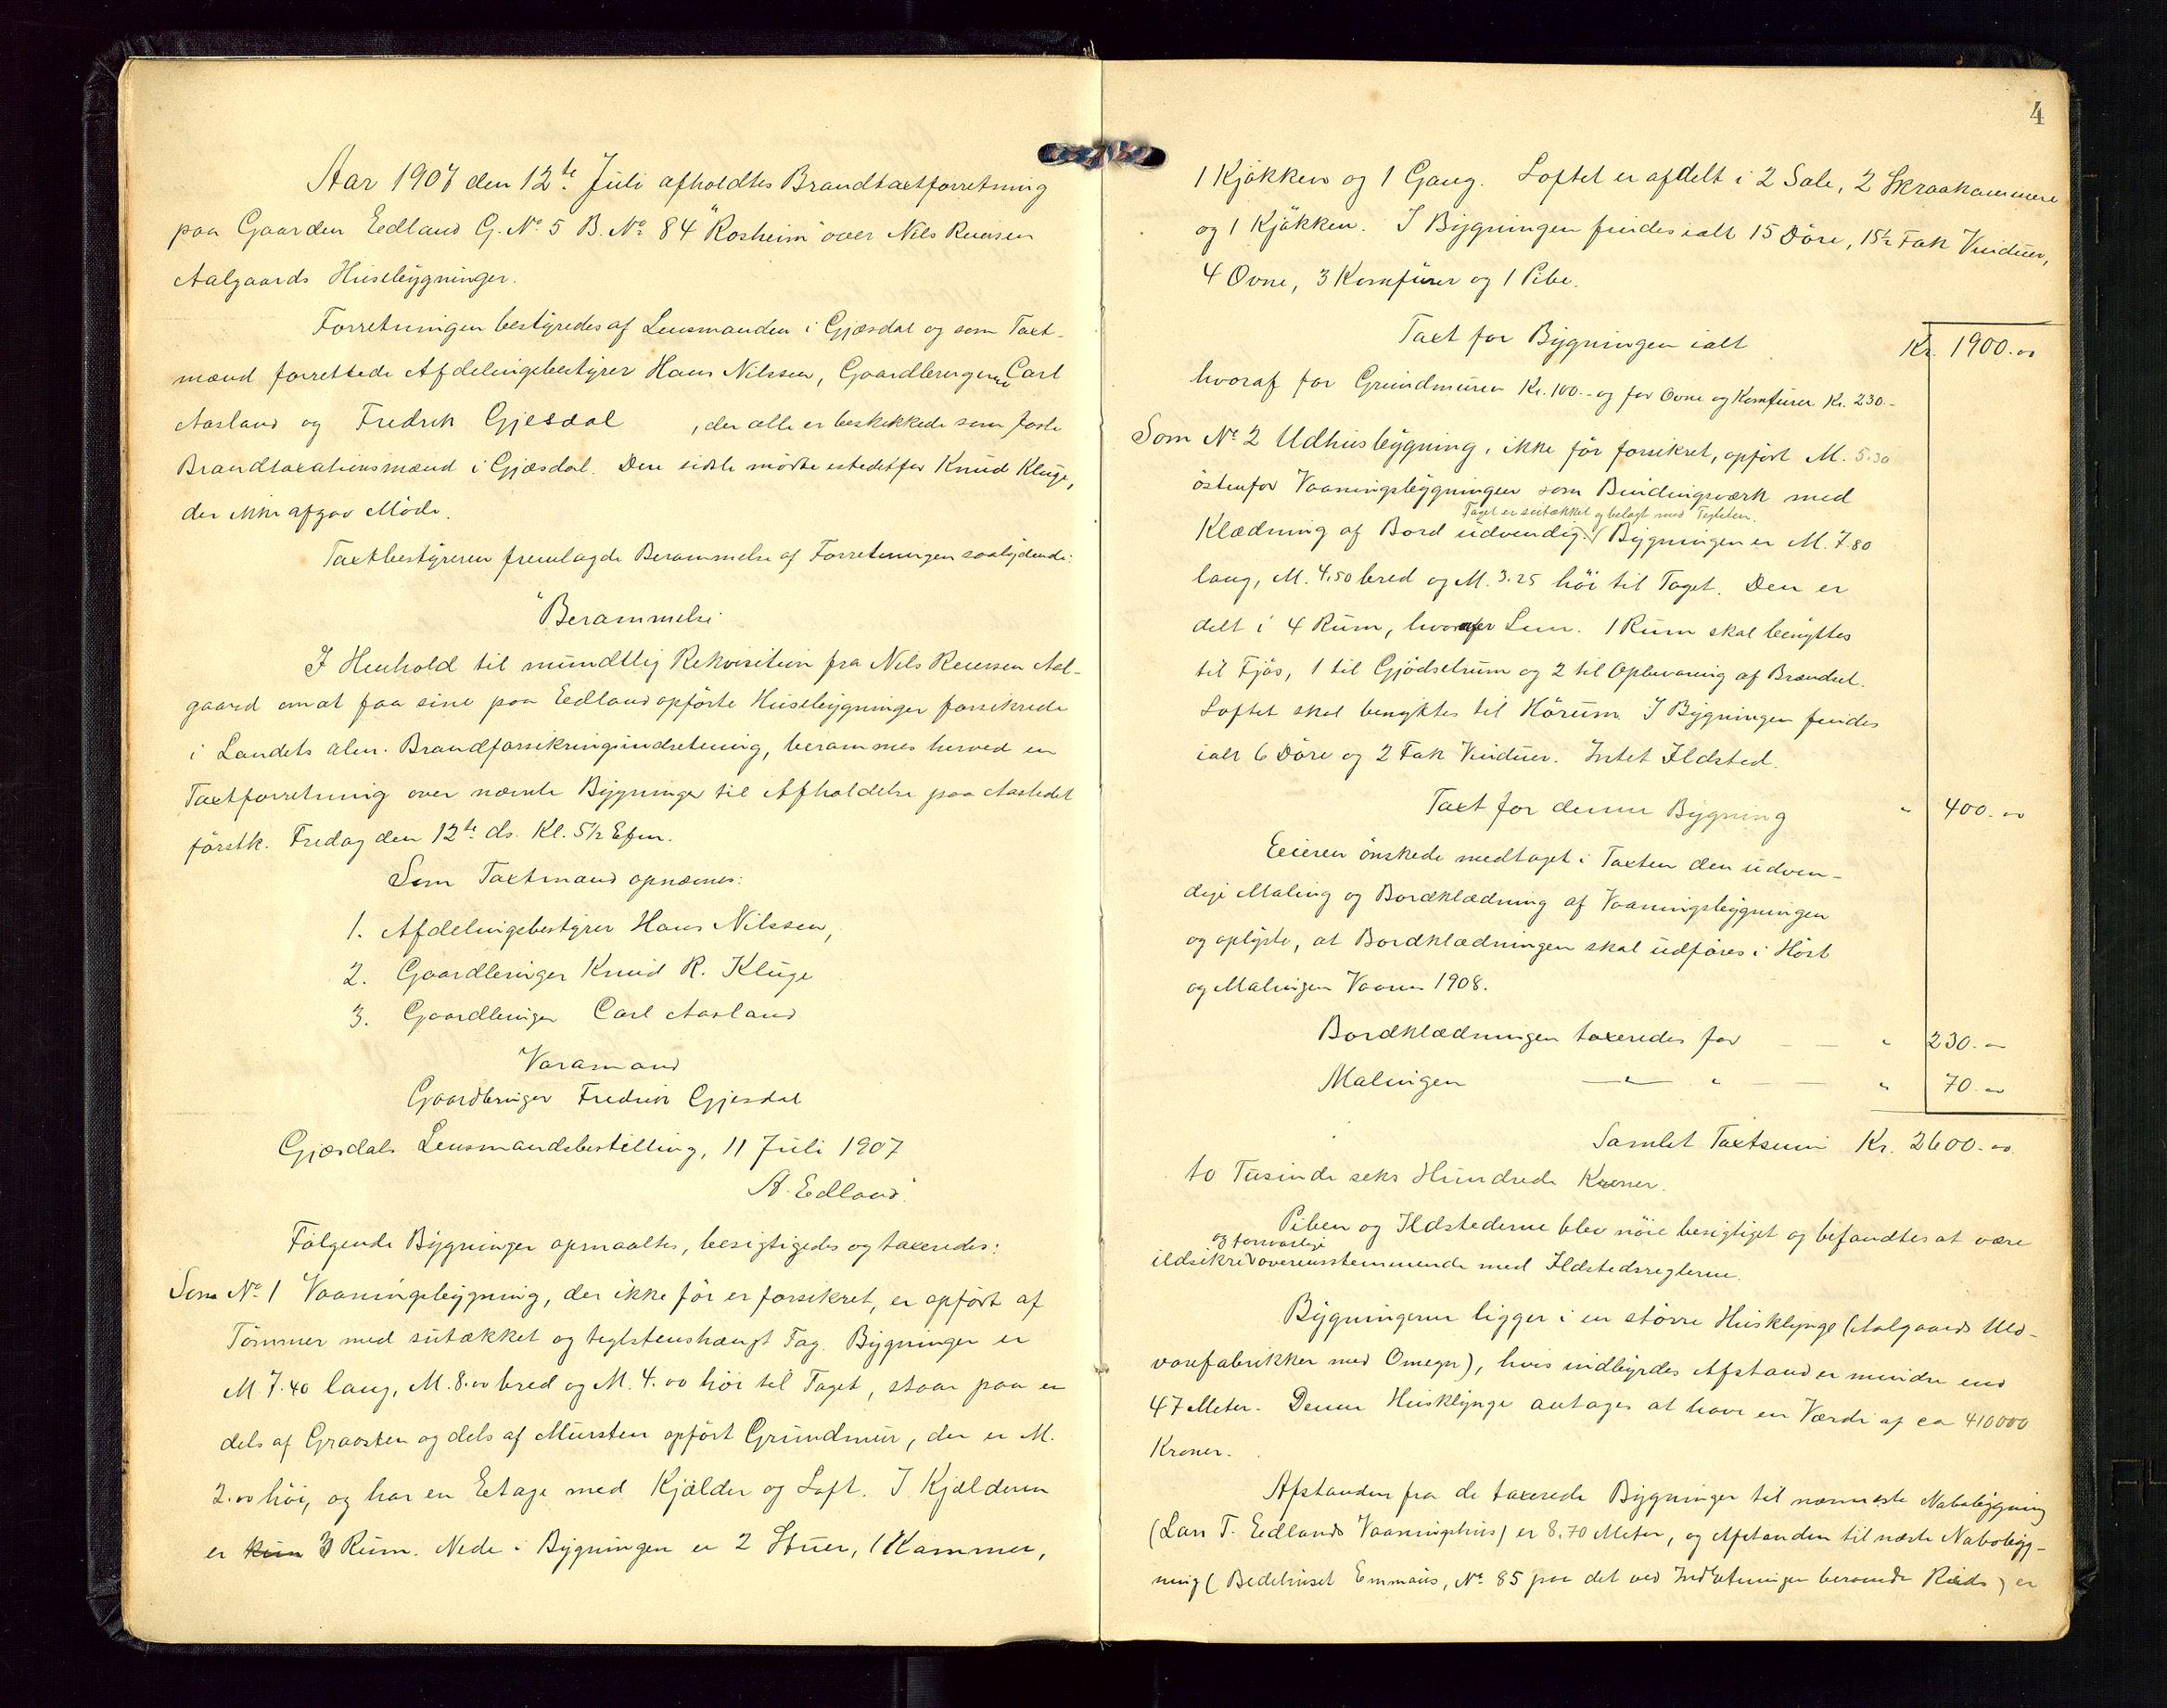 Aar 1907 den 12te Juli afholdtes Brandtaxtforretning
paa Gaarden Eedland G. No 5 B. No 84 "Rosheim" over Nils Reiersen
Aalgaards Husebygninger.
Forretningen bestyredes af Lensmanden i Gjæsdal og som Taxt-
mænd forrettede Afdelingsbestyrer Hans Nilssen, Gaardbrugerne Carl
Aasland og Fredrik Gjesdal, der alle er beskikkede som faste
Brandtaxationsmænd i Gjæsdal. Den sidste mødte istedetfor Knud Kluge,
der ikke afgav Møde.
Taxtbestyreren fremlagde Berammelse af Forretningen saalydende:
"Berammelse
I Henhold til mundtlig Rekvisition fra Nils Reiersen Aal-
gaard om at faa sine paa Eedland opførte Husebygninger forsikrede
i Landets alm. Brandforsikringsindretning, berammes herved en
Taxtforretning over nævnte Bygninger til Afholdelse paa Aastedet
førstk. Fredag den 12te ds. Kl. 5½ Efm.
Som Taxtmænd opnævnes:
1. Afdelingsbestyrer Hans Nilssen,
2. Gaardbruger Knud R. Kluge
3. Gaardbruger Carl Aasland
Varamand
Gaardbruger Fredrik Gjesdal
Gjæsdals Lensmandsbestilling, 11 Juli 1907
A. Edland."
Følgende Bygninger opmaaltes, besigtigedes og taxeredes:
Som No 1 Vaaningsbygning, der ikke før er forsikret, er opført af
Tømmer med sutækket og teglstenshængt Tag. Bygningen er
M 7.40 lang, M. 8.00 bred og M. 4.00 høi til Taget, staar paa en
dels af Graasten og dels af Mursten opført Grundmur, der er M.
2.00 høi, og har en Eetage med Kjælder og Loft. I Kjælderen
er kun 3 Rum. Nede i Bygningen er 2 Stuer, 1 Kammer,
4
1 Kjøkken og 1 Gang. Loftet er afdelt i 2 Sale, 2 Skraakammere
og 1 Kjøkken. I Bygningen findes ialt 15 Døre, 15½ Fak Vinduer,
4 Ovne, 3 Komfurer og 1 Pibe.
Taxt for Bygningen ialt Kr. 1900.00
hvoraf for Grundmuren Kr. 100.- og for Ovne og Komfurer Kr. 230.-
Som No 2 Udhusbygning, ikke før forsikret, opført M. 5.30
østenfor Vaaningsbygningen som Bindingsværk med
Taget er sutækket og belagt med Teglsten.
Klædning af Bord udvendig. Bygningen er M. 7.80
lang, M. 4.50 bred og M. 3.25 høi til Taget. Den er
delt i 4 Rum, hvorover Lem. 1 Rum skal benyttes
til Fjøs, 1 til Gjødselrum og 2 til Opbevaring af Brændsel.
Loftet skal benyttes til Hørum. I Bygningen findes
ialt 6 Døre og 2 Fak Vinduer. Intet Ildsted.
Taxt for denne Bygning " 400.00
Eieren ønskede medtaget i Taxten den udven-
dige Maling og Bordklædning af Vaaningsbygningen
og oplyste, at Bordklædningen skal udføres i Høst
og Malingen Vaaren 1908.
Bordklædningen taxeredes for — — " 230.00
Malingen —"— " — " 70.00
Samlet Taxtsum Kr. 2600.00
to Tusinde seks Hundrede Kroner.
Piben og Ildstederne blev nøie besigtiget og befandtes at være
og forsvarlige
ildsikre overensstemmende med Ildstedsreglerne.
Bygningerne ligger i en større Husklynge (Aalgaards Uld-
varefabrikker med Omegn), hvis indbyrdes Afstand er mindre end
47 Meter. Denne Husklynge antages at have en Værdi af ca 410000
Kroner.
Afstanden fra de taxerede Bygninger til nærmeste Nabobygning
(Lars T. Eedlands Vaaningshus) er 8.70 Meter, og Afstanden til næste Nabobyg-
ning (Bedehuset Emmaus, No 85 paa det ved Indretningen beroende Rids) er